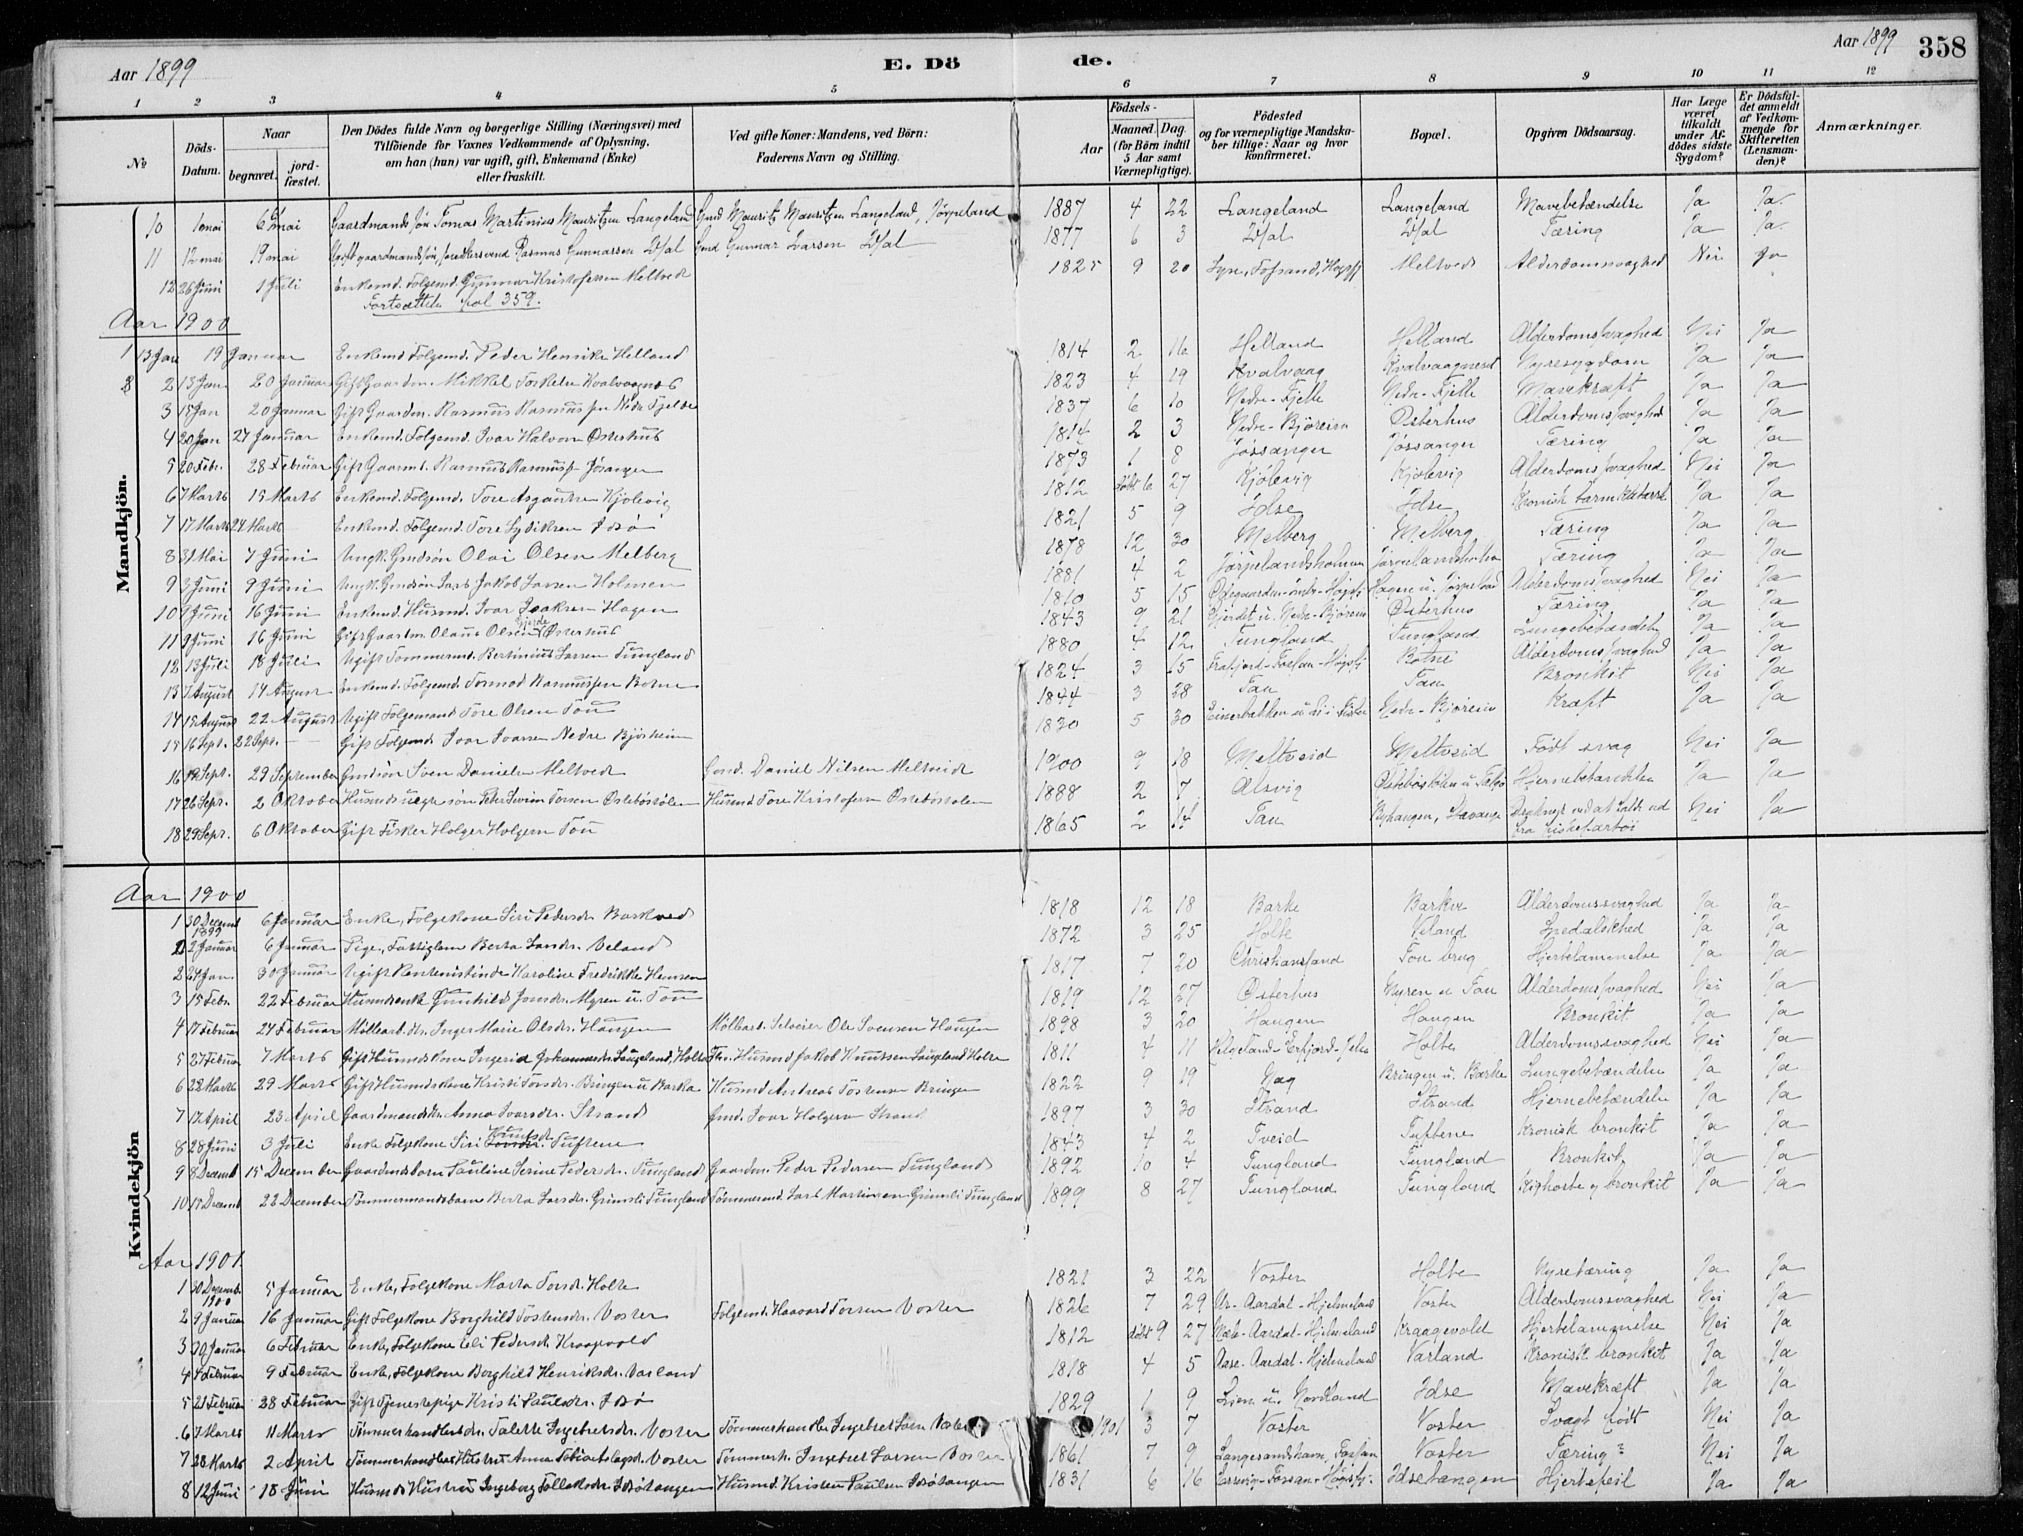 Aar 1899
E. Dö de.
Aar 1899
358
1 2 3 4 5 6 7 8 9 10 11 12
№
Döds-Datum.
Naar
begravet.
jordfæstet.
Den Dödes fulde Navn og borgerlige Stilling (Næringsvei) med Tilföiende for Voxnes Vedkommende af Oplysning, om han (hun) var ugift, gift, Enkemand (Enke) eller fraskilt.
Ved gifte Koner: Mandens, ved Börn: Faderens Navn og Stilling.
Födsels-
Aar
Maaned. Dag.
(for Börn indtil 5 Aar samt Værnepligtige).
Födested og for værnepligtige Mandskaber tillige: Naar og hvor konfirmeret.
Bopæl.
Opgiven Dödsaarsag.
Har Læge været tilkaldt under Afdødes sidste Sygdom?
Er Dödsfaldet anmeldt af Vedkommende for Skifteretten (Lensmanden)?
Anmærkninger.
Mandkjön.
10 1 mai 6 mai Gaardmands søn Tomas Martinius Mauritzen Langeland Gmd Mauritz Mauritzen Langeland, Jørpeland 1887 4 22 Langeland Langeland Mavebetændelse Ja Ja
11 12 mai 19 mai Rasmus Gunnarsen Gmd Gunnar Larsen 1877 6 3 Tæring Ja Ja
12 26 Juni 1 Juli Enkemd. Folgemd. Gunnar Kristofersen Meltved 1825 9 20 Meltved Alderdomssvaghed Nei Ja
Fortsættelse fol 359.
Aar 1900
1 13 Jan 19 Januar Enkemd Folgemd. Peder Henriksen Helland 1814 2 16 Helland Helland Alderdomssvaghed Nei Ja
2 13 Jan 20 Januar Gift Gaardm. Mikkel Torkelsen Kvalvaagnes 1823 4 19 Kvalvaag Kvalvaagneset Nyresygdom Ja Ja
3 15 Jan 20 Januar Gift Gaardm. Rasmus Rasmussen Nedre Fjelde 1837 6 10 Nedre-Fjelle Nedre-Fjelle Mavekræft Ja Ja
4 20 Jan 27 Januar Enkemd. Folgemd. Ivar Halvorsen Østerhus 1814 2 3 Nedre-Björeim Østerhus Alderdomssvaghed Ja Ja
5 20 Febr. 28 Februar Gift Gaardmd. Rasmus Rasmuss. Jösanger 1873 1 8 Jössanger Jössanger Tæring Ja Ja
6 7 Marts 15 Marts Enkemd. Folgemd. Tore Asgautsen Kjölevig 1812 döbt 6 27 Kjölevig Kjölevig Alderdomssvaghed Nei Ja
7 17 Marts 24 Marts Enkemd. Folgemd. Tore Sydiksen Idsö 1821 5 9 Idse Idse Kronisk Tarmkatarrh Ja Ja
8 31 Mai 7 Juni Ungk. Gmdsön Olai Olsen Melberg 1878 12 30 Melberg Melberg Tæring Ja Ja
9 3 Juni 9 Juni Ungk. Gmdsön Lars Jakob Larsen Holmen 1881 4 2 Jörpelandsholmen Jörpelandsholmen Tæring Ja Ja
10 9 Juni 16 Juni Enkemd. Husmd. Ivar Isaksen Hagen 1810 5 15 Hagen u. Jörpeland Alderdomssvaghed Nei Ja
11 9 Juni 16 Juni Gift Gaardm. Olaus Olsen Gjerde Østerhus 1843 9 21 Gjerdet u. Nedre-Björeim Østerhus Tæring Ja Ja
12 13 Juli 18 Juli Ugift Tømmermd. Bertinius Larsen Tungland 1880 4 12 Tungland Tungland Lungebetændelse Ja Ja
13 7 August 14 August Enkemd. Folgemd. Tormod Rasmussen Botne 1824 3 15 Frafjord-Fossan-Høgsfj. Botne Alderdomssvaghed Ja Ja
14 15 August 22 August Ugift Folgemand Tore Olsen Tou 1844 3 28 Tau Tau Bronkit Nei Ja
15 16 Sept. 22 Sept. Gift Folgemd. Ivar Ivarsen Nedre Bjørheim 1830 5 30 Einerbakken Nedre-Björeim Kræft Ja Ja
16 19 Sept. 29 September Gmdsön Sven Danielsen Meltved Gmd. Daniel Nilsen Meltveid 1900 9 18 Meltveid Meltveid Født svag Nei Ja
17 26 Sept. 2 Oktober Husmds uegte sön Peter Severin Toresen Østebøstølen Husmd Tore Kristofersen Østebøstølen 1888 2 7 Alsvig Østebøstölen u. Hjernebetændelse Ja Ja
18 29 Sept. 6 Oktober Gift Fisker Holger Holgersen Tou 1865 2 14 Tau Byhaugen, Stavanger Druknet ved at falde ud fra fiskefartöi Nei Ja
Kvindekjön
Aar 1900
1 30 Decemb 1899 6 Januar Enke, Folgekone Siri Pedersdr. Barkved 1818 12 18 Barke Barkve Alderdomssvaghed Ja Ja
2 Januar 6 Januar Pige, Fattiglem Berta Larsdr. Veland 1872 3 25 Holte Veland Spedalskhed Ja Ja
2 24 Jan. 30 Januar Ugift Rentenistinde Karoline Fredrikke Hansen 1817 7 20 Christiansand Tou brug Hjertelammelse Ja Ja
3 15 Febr. 22 Februar Husmdsenke Gunhild Jonsdr. Myren u. Tou 1819 12 27 Østerhus Myren u Tau Alderdomssvaghed Nei Ja
4 17 Februar 24 Februar Möllearb. dtr. Inger Marie Olsdr. Haugen Möllearb. Seloeier Ole Svensen Haugen 1898 3 20 Haugen Haugen Bronkit Ja Ja
5 27 Februar 7 Marts Gift Husmdskone Ingerid Johannesdr. Laugeland, Holte Husmd Jakob Knutsen Laugland Holte 1811 4 11 Helgeland-Erfjord-Jelse Holte Alderdomssvaghed Nei Ja
6 22 Marts 29 Marts Gift Husmdskone Kristi Toresdr. Bringen u Barka Husmd Andreas Tostensen Bringen 1822 9 19 Nag Bringen u. Barke Lungebetændelse Ja Ja
7 17 April 23 April Gaardmandsdtr. Anna Ivarsdr. Strand Gmd. Ivar Holgersen Strand 1897 3 30 Strand Strand Hjernebetændelse Ja Ja
8 28 Juni 3 Juli Enke Folgekone Siri Knutsdr. Tuftene 1843 4 2 Tveid Tuftene Kronisk bronkit Ja Ja
9 8 Decemb 15 December Gaardmdsbarn Pauline Serine Pedersdr. Tungland Gaardm. Peder Pedersen Tungland 1892 10 4 Tungland Tungland Bronkit Ja Ja
10 15 Decemb 22 December Tömmermandsbarn Berta Larsdr. Grimsli Tungland Tömmermd. Lars Martinsen Grimsli Tungland 1899 8 27 Tungland Tungland Kighoste og bronkit Ja Ja
Aar 1901.
1 30 Decemb. 1900 5 Januar Enke, Folgekone Marta Toresdr. Holte 1821 3 22 Voster Holte Nyretæring Ja Ja
2 9 Januar 16 Januar Gift Folgekone Borghild Tostensdr. Voster Folgemd. Haavard Toresen Voster 1826 7 29 Aardal-Hjelmeland Voster Alderdomssvaghed Nei Ja
3 30 Januar 6 Februar Enke, Folgekone Eli Pedersdr. Kraagevold 1812 döbt 9 27 Aardal-Hjelmeland Kraagevold Hjertelammelse Nei Ja
4 4 Februar 9 Februar Enke, Folgekone Borghild Henriksdr. Varland 1818 4 5 Aase-Aardal-Hjelmeland Varland Kronisk bronkit Ja Ja
5 21 Februar 28 Februar Gift Tjenestepige Kristi Paulsdr. Idsö 1829 1 9 Lien u. Nordland Idse Mavekræft Ja Ja
6 7 Marts 11 Marts Tömmerhandlers dr. Talette Ingebretsdr. Voster Tömmerhandler Ingebret Larsen Voster 1901 3 7 Voster Voster Svagt født Nei Ja
7 28 Marts 2 April Tömmerhandlers Hustru Anna Voster Tömmerh. Ingebret Larsen Voster 1861 7 9 Voster Tæring? Nei Ja
8 12 Juni 18 Juni Husmds Hustru Ingeborg Folleksdr. Idsötangen Husmd. Kristen Paulsen Idsötangen 1831 6 16 Fossan-Høgsfj. Idsetangen Hjertefeil Ja Ja